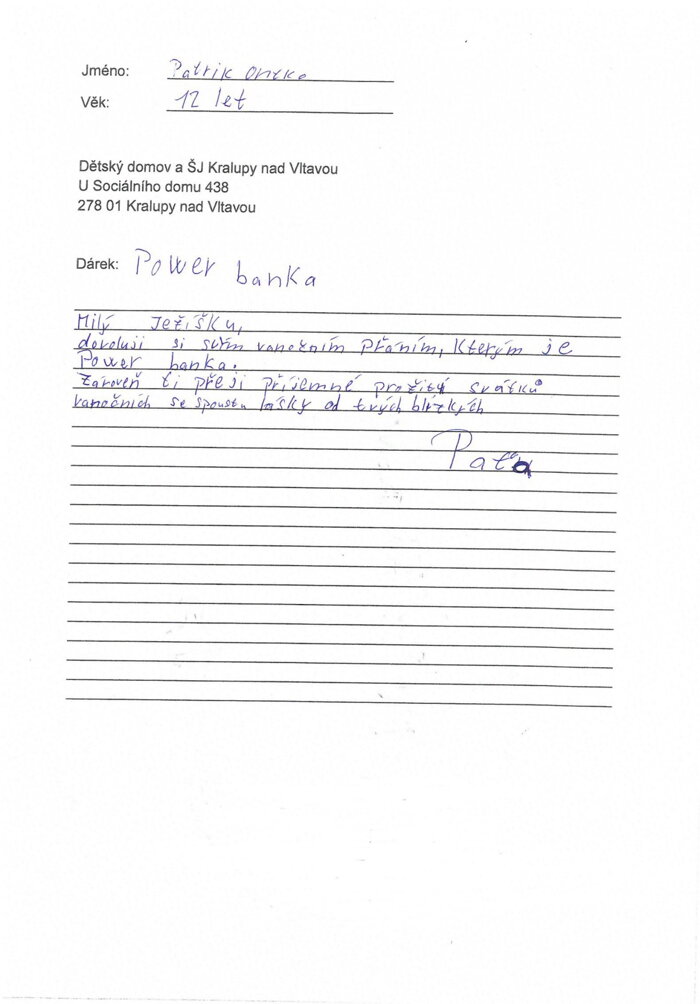 Jméno: Patrik
Věk: 12 let
Dětský domov a ŠJ Kralupy nad Vltavou
U Sociálního domu 438
278 01 Kralupy nad Vltavou
Dárek: Power banka
Milý Ježíšku,
dovoluji si svým vanočním přáním, kterým je
Power banka.
Zároveň ti přeji příjemné prožitý svátků
vanočních se spoustu lásky od tvých blízkých
Paťa